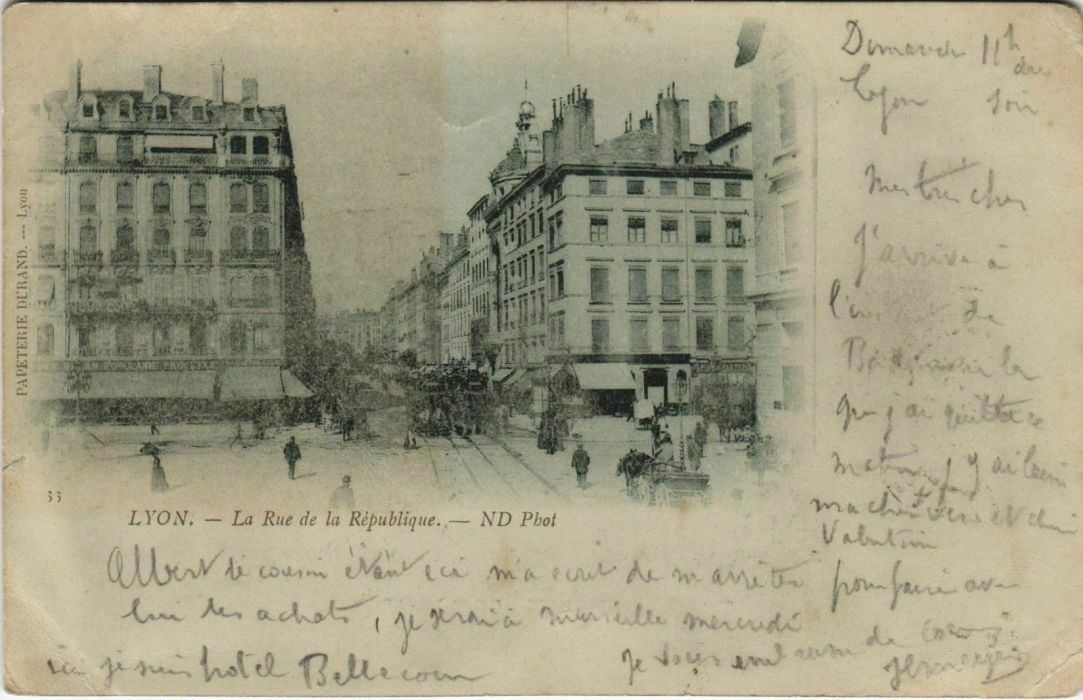 Dimanche 11h du
Lyon soir
Mon très cher
J'arrive à
l'instant de
que j'ai quitté ce
matin, j'y ai laissé
ma chère
Valentin
PAPETERIE DURAND. — Lyon
33
LYON. — La Rue de la République. — ND Phot
Albert le cousin étant ici m'a écrit de m'arrêter pour faire avec
lui les achats, je serai à Marseille mercredi
ici je suis hotel Bellecour
je vous embrasse de coeur